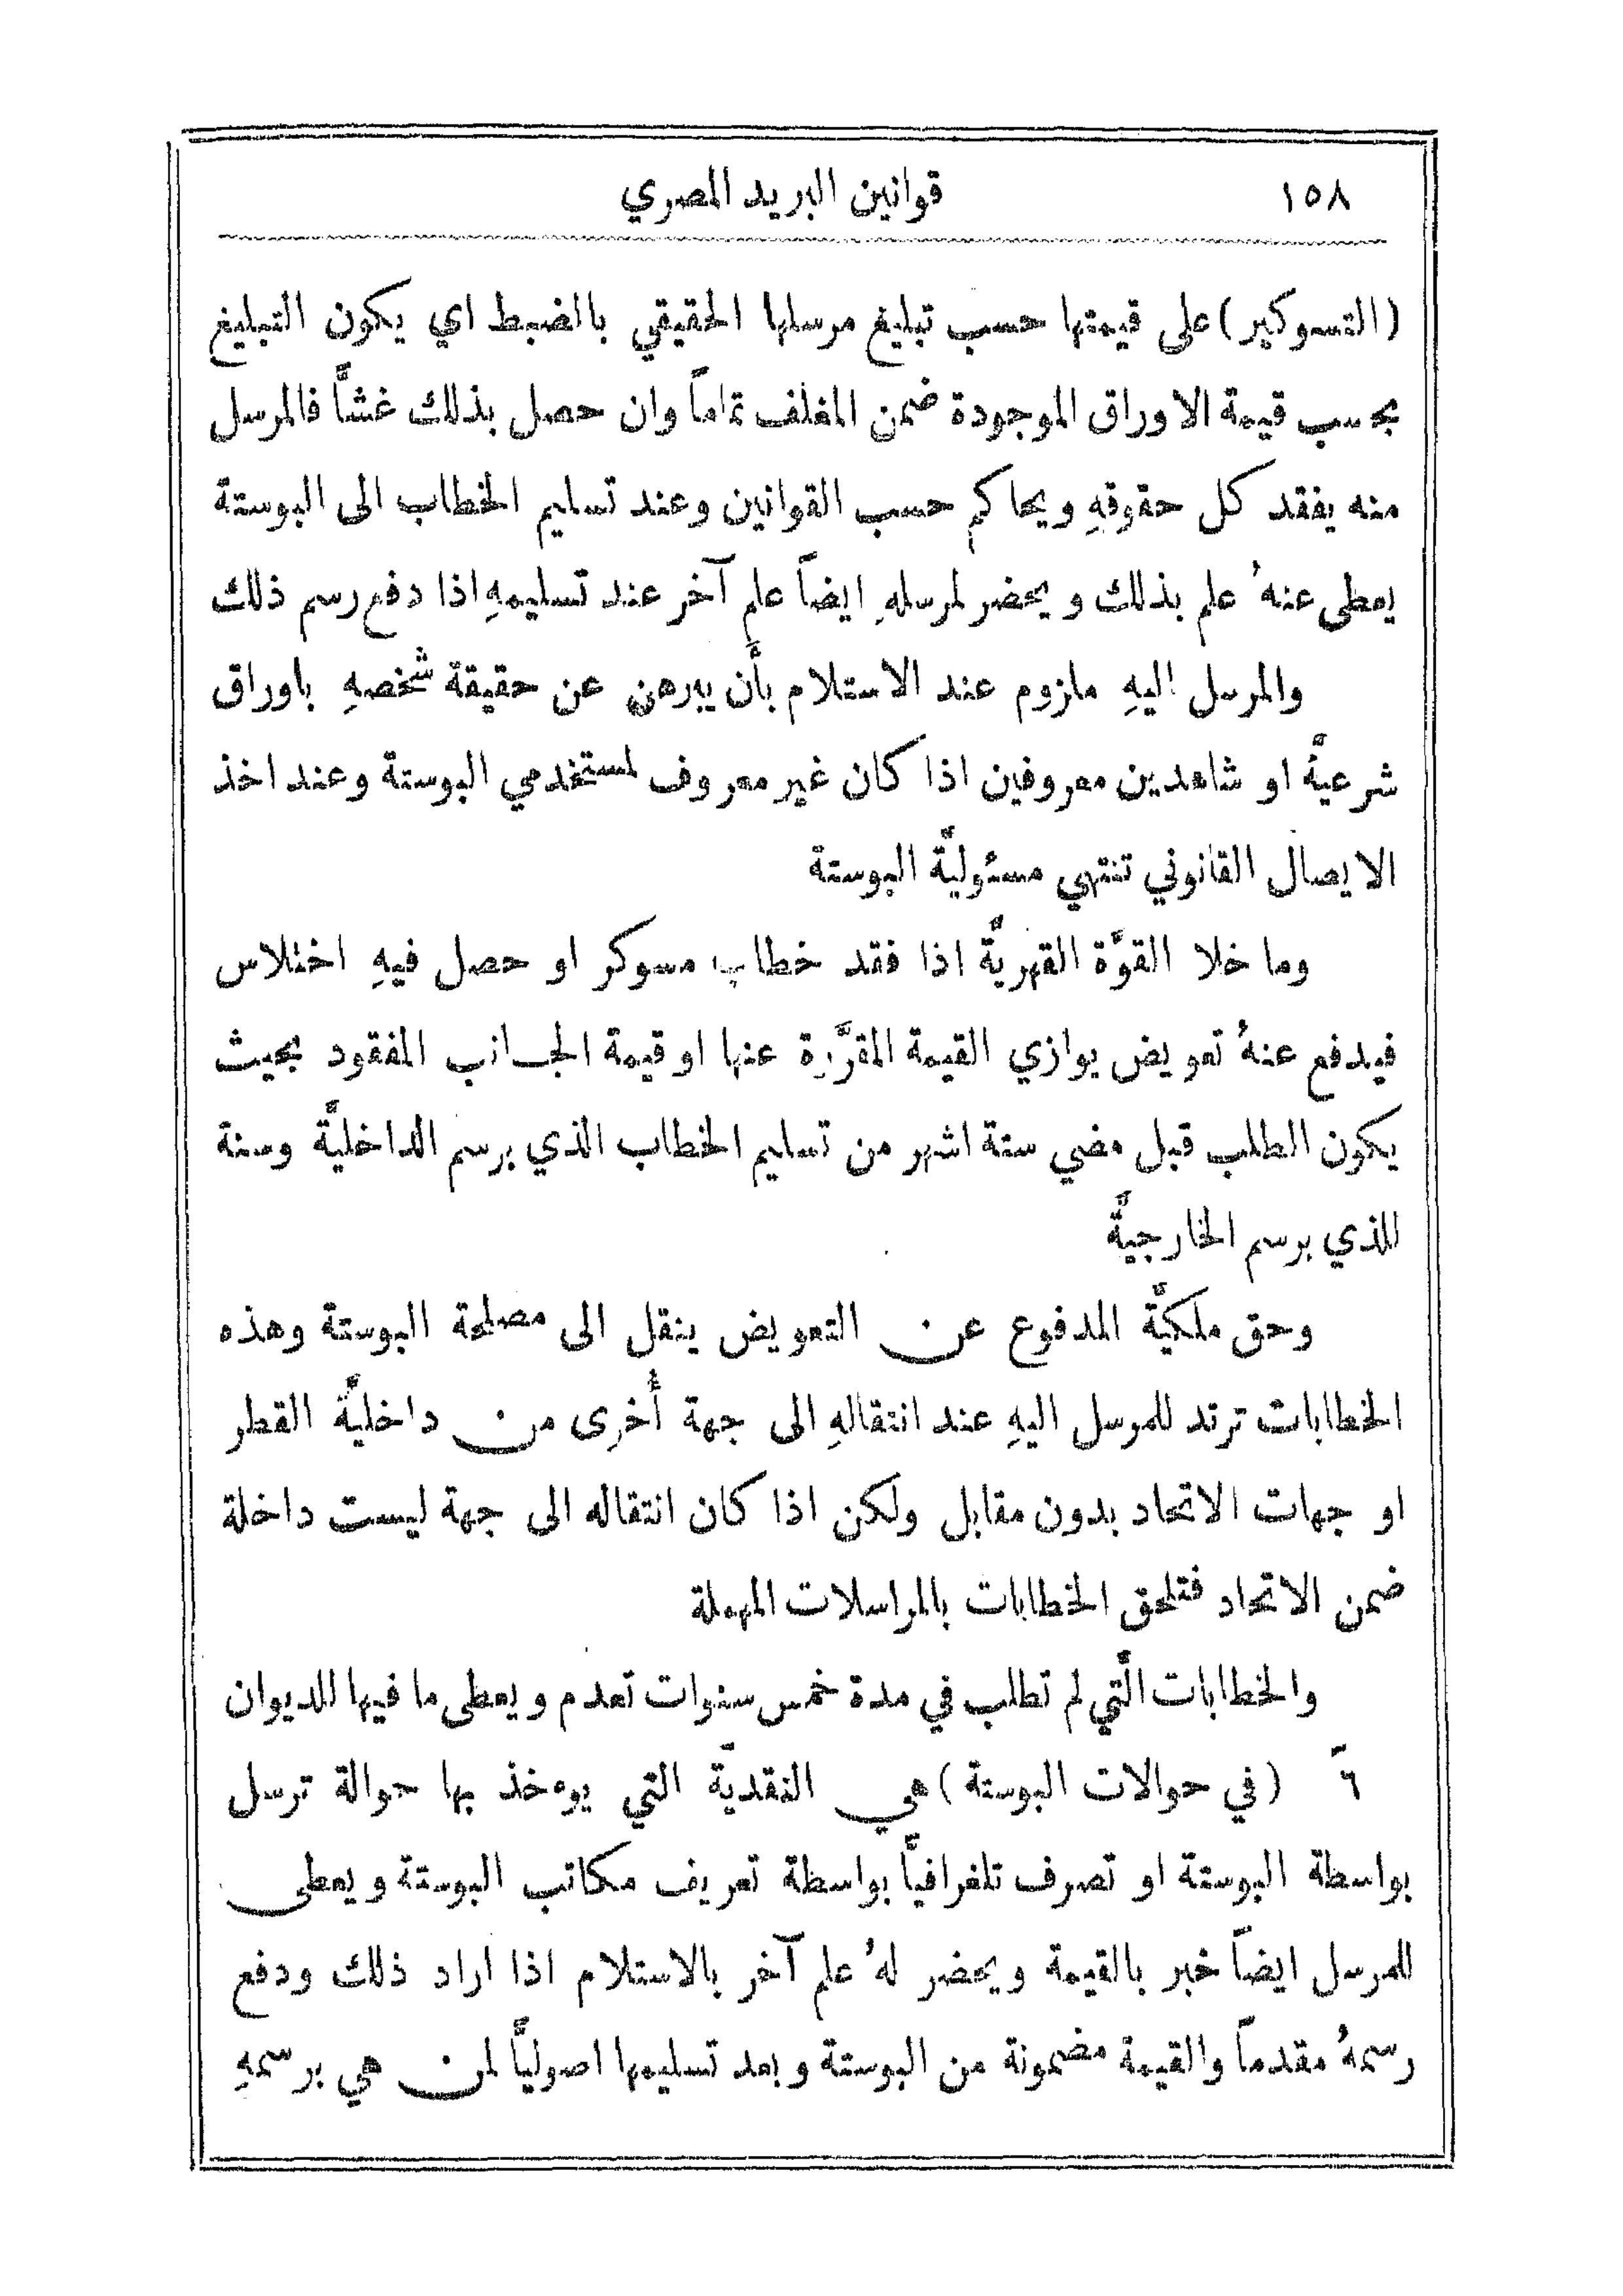 ١٥٨ قوانين البريد المصري
(التسوكير) على قيمتها حسب تبليغ مرسلها الحقيقي بالضبط اي يكون التبليغ
بحسب قيمة الاوراق الموجودة ضمن المغلف تماماً وان حصل بذلك غشاً فالمرسل
منه يفقد كل حقوقهِ ويحاكم حسب القوانين وعند تسليم الخطاب الى البوستة
يعطى عنهُ علم بذلك ويحضر لمرسلهِ ايضاً علم آخر عند تسليمهِ اذا دفع رسم ذلك
والمرسل اليهِ ملزوم عند الاستلام بأن يبرهن عن حقيقة شخصهِ باوراق
شرعيَّة او شاهدين معروفين اذا كان غير معروف لمستخدمي البوستة وعند اخذ
الايصال القانوني تنتهي مسئوليَّة البوستة
وما خلا القوَّة القهريَّة اذا فقد خطاب مسوكر او حصل فيهِ اختلاس
فيدفع عنهُ تعويض يوازي القيمة المقرَّرة عنها او قيمة الجانب المفقود بحيث
يكون الطلب قبل مضي ستة اشهر من تسليم الخطاب الذي برسم الداخليَّة وسنة
للذي برسم الخارجيَّة
وحق ملكيَّة المدفوع عن التعويض ينقل الى مصلحة البوستة وهذه
الخطابات ترتد للمرسل اليهِ عند انتقالهِ الى جهة أُخرى من داخليَّة القطر
او جهات الاتحاد بدون مقابل ولكن اذا كان انتقاله الى جهة ليست داخلة
ضمن الاتحاد فتلحق الخطابات بالمراسلات المهملة
والخطابات الَّتي لم تطلب في مدة خمس سنوات تعدم ويعطى ما فيها للديوان
٦ (في حوالات البوستة) هي النقديَّة التي يوءخذ بها حوالة ترسل
بواسطة البوستة او تصرف تلغرافيَّاً بواسطة تعريف مكاتب البوستة ويعطى
للمرسل ايضاً خبر بالقيمة ويحضر لهُ علم آخر بالاستلام اذا اراد ذلك ودفع
رسمهُ مقدماً والقيمة مضمونة من البوستة وبعد تسليمها اصوليَّاً لمن هي برسمهِ